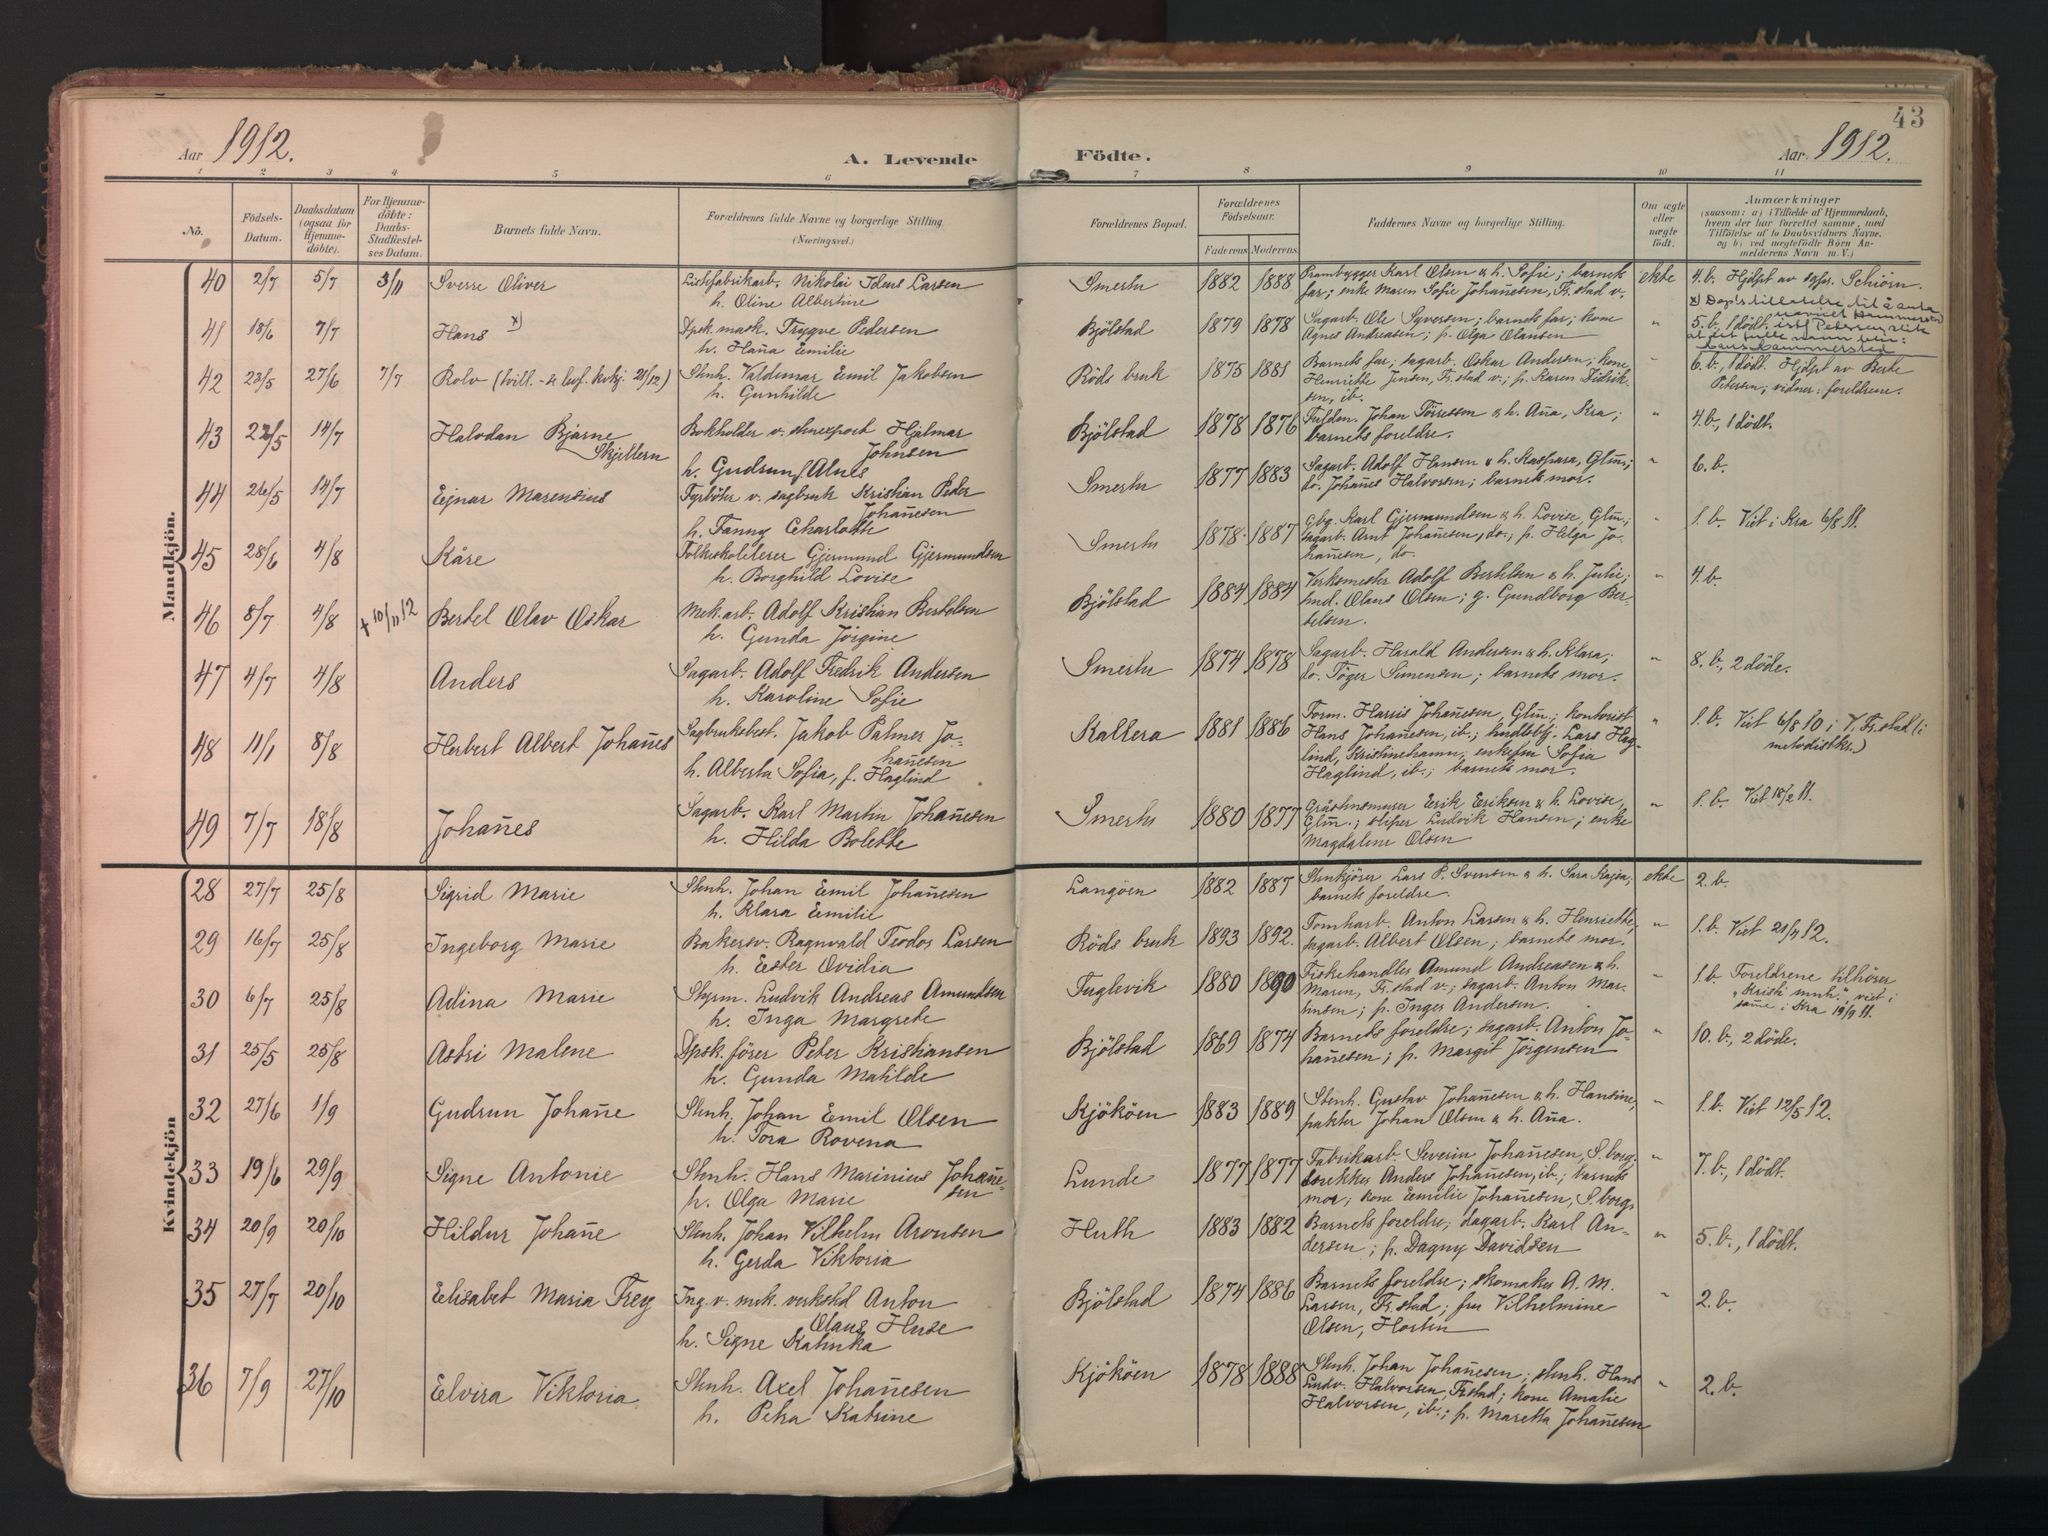 43
Aar 1912.
A. Levende Födte.
Aar 1912.
1 2 3 4 5 6 7 8 9 10 11
No.
Födsels-Datum.
Daabsdatum (ogsaa for Hjemme-döbte).
For Hjemme-döbte: Daabs-Stadfæstel-ses Datum.
Barnets fulde Navn.
Forældrenes fulde Navne og borgerlige Stilling.
(Næringsvei.)
Forældrenes Bopæl.
Forældrenes Födselsaar.
Faderens Moderens
Faddernes Navne og borgerlige Stilling.
Om ægte eller uægte födt.
Anmærkninger
(saasom: a) i Tilfælde af Hjemmedaab,
hvem der har forrettet samme, med
Tilföielse af to Daabsvidners Navne,
og b) ved uægtefödte Börn An-
melderens Navn m. V.)
Mandkjön.
40 2/7 5/7 3/11 Sverre Oliver
Nikolai Larsen
h. Oline Albertine
Smertu 1882 1888
Prambygger Karl Olsen & h. Sofie; barnets
far; enke Maren Sofie Johan̄esen, Fr.stad v.
ekte
4. b. Hjelpt av Schiörn.
41 18/6 7/7 Hans x)
Dpsk. mask. Trygve Pedersen
h. Han̄a Emilie
Bjölstad 1879 1878
Sagarb. Ole Syversen; barnets far; kone
Agnes Andreasen; p. Olga Olausen
"
5. b., 1 dödt.
42 23/5 27/6 7/7 Rolv
Stenh. Valdemar Emil Jakobsen
h. Gunhilde
Röds bruk 1875 1881
Barnets far; sagarb. Oskar Andersen; kone
Henriette Jensen, Fr.stad v.; p. Karen Didrik-
sen, ib.
"
6. b., 1 dödt. Hjelpt av Berte
Petersen; vidner: foreldrene.
43 22/5 14/7 Halvdan Bjarne
Skjellern
Bokholder v. stenexport Hjalmar
Johnsen
h. Gudrun
Bjölstad 1878 1876
Johan Töressen & h. An̄a, Kra;
barnets foreldre.
"
4. b., 1 dödt.
44 26/5 14/7 Ejnar Marensius
Fyrböter v. sagbruk Kristian Peder
Johan̄esen
h. Fanny Charlotte
Smertu 1877 1883
Sagarb. Adolf Hansen & h. Kaspara, Glm̄;
do. Johan̄es Halvorsen; barnets mor.
"
6. b.
45 28/6 4/8 Kåre
Folkeskolelærer Gjermund Gjermundsen
h. Borghild Lovise
Smertu 1878 1887
Gbg. Karl Gjermundsen & h. Lovise, Glm̄;
Sagarb. Arnt Johan̄esen, do.; p. Helga Jo-
han̄esen, do.
"
1. b. Viet i Kra 6/8 11.
46 8/7 4/8 + 10/11 12 Bertel Olav Oskar
Mek. arb. Adolf Kristian Bertelsen
h. Gunda Jörgine
Bjölstad 1884 1884
Verksmester Adolf Bertelsen & h. Julie;
Olaus Olsen; g. Gundborg Ber-
telsen.
"
4. b.
47 4/7 4/8 Anders
Sagarb. Adolf Fredrik Andersen
h. Karoline Sofie
Smertu 1874 1878
Sagarb. Harald Andersen & h. Klara;
do. Töger Simensen; barnets mor.
"
8. b., 2 döde.
48 11/1 8/8 Herbert Albert Johan̄es
Sagbruksbest. Jakob Palmer Jo-
han̄esen
h. Alberta Sofia, f. Haglind
Kallera 1881 1886
Form. Harris Johan̄esen, Glm̄; kontorist
Hans Johan̄esen, ib.; Lars Hag-
lind, Kristinehamn; Sofia
Haglind, ib.; barnets mor.
"
1. b. Viet 6/8 10 i V. Fr.stad (i
metodistks.)
49 7/7 18/8 Johan̄es
Sagarb. Karl Martin Johan̄esen
h. Hilda Bolette
Smertu 1880 1877
Gråstensmurer Eerik Eeriksen & h. Lovise,
Glm̄.; sliper Ludvik Hansen; enke
Magdalene Olsen
"
1. b. Viet 18/2 11.
Kvindekjön
28 27/7 25/8 Sigrid Marie
Stenh. Johan Emil Johan̄esen
h. Klara Eemilie
Langöen 1882 1887
Stenkjörer Lars P. Svensen & h. Sara Kajsa;
barnets foreldre.
ekte
2. b.
29 16/7 25/8 Ingeborg Marie
Bakersv. Ragnvald Teodor Larsen
h. Eester Ovidia
Röds bruk 1893 1892.
Tomtarb. Anton Larsen & h. Henriette;
sagarb. Albert Olsen; barnets mor.
"
1. b. Viet 21/4 12.
30 6/7 25/8 Adina Marie
Styrm. Ludvik Andreas Amundsen
h. Inga Margrete
Fuglevik 1880 1890
Fiskehandler Amund Andreasen & h.
Maren, Fr.stad v.; sagarb. Anton Mar-
tinsen; p. Inger Andersen.
"
1. b. Foreldrene tilhörer
"Kristi mnh.", viet i
sam̄e i Kra 19/9 11.
31 25/5 25/8 Astri Malene
Dpsk. förer Peter Kristiansen
h. Gunda Matilde
Bjölstad 1869 1874
Barnets foreldre; sagarb. Anton Jo-
han̄esen; p. Margit Jörgensen
"
10. b., 2 döde.
32 27/6 1/9 Gudrun Johan̄e
Stenh. Johan Emil Olsen
h. Tora Rovena
Kjököen 1883 1889
Stenh. Gustav Johan̄esen & h. Hansine;
pakter Johan Olsen & h. An̄a.
"
1. b. Viet 12/5 12.
33 19/6 29/9 Signe Antonie
Stenh. Hans Marinius Johan̄e-
sen
h. Olga Marie
Lunde 1877 1877
Fabrikarb. Severin Johan̄esen, S.borg,
Anders Johan̄esen, ib.; barnets
mor; kone Eemilie Johan̄esen, S.borg
"
7. b., 1 dödt.
34 20/9 20/10 Hildur Johan̄e
Stenh. Johan Vilhelm Aronsen
h. Gerda Viktoria
Huth 1883 1882
Barnets foreldre; dagarb. Karl An-
dersen; p. Dagny Davidsen
"
5. b., 1 dödt.
35 27/7 20/10 Elisabet Maria Frey
Ing. v. mek. verksted Anton
Olaus Huse
h. Signe Katinka
Bjölstad 1874 1886
Barnets foreldre; skomaker A. M.
Larsen, Fr.stad; fru Vilhelmine
Olsen, Horten
"
2. b.
36 7/9 27/10 Elvira Viktoria
Stenh. Axel Johan̄esen
h. Petra Katrine
Kjököen 1878 1888
Stenh. Johan Johan̄esen; stenh. Hans
Ludv. Halvorsen, Fr.stad; kone Amalie
Halvorsen, ib.; p. Maretta Johan̄esen
"
2. b.